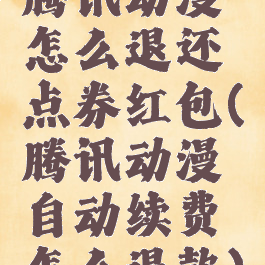 腾讯动漫
怎么退还
点券红包(
腾讯动漫
自动续费
怎么退款)